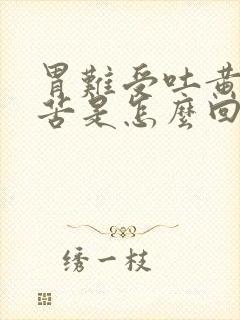 胃難受吐黃
苦是怎麼回
绣一枝